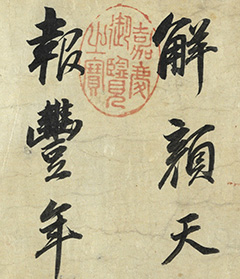 解顏天
報豐年
嘉慶御覽之寶